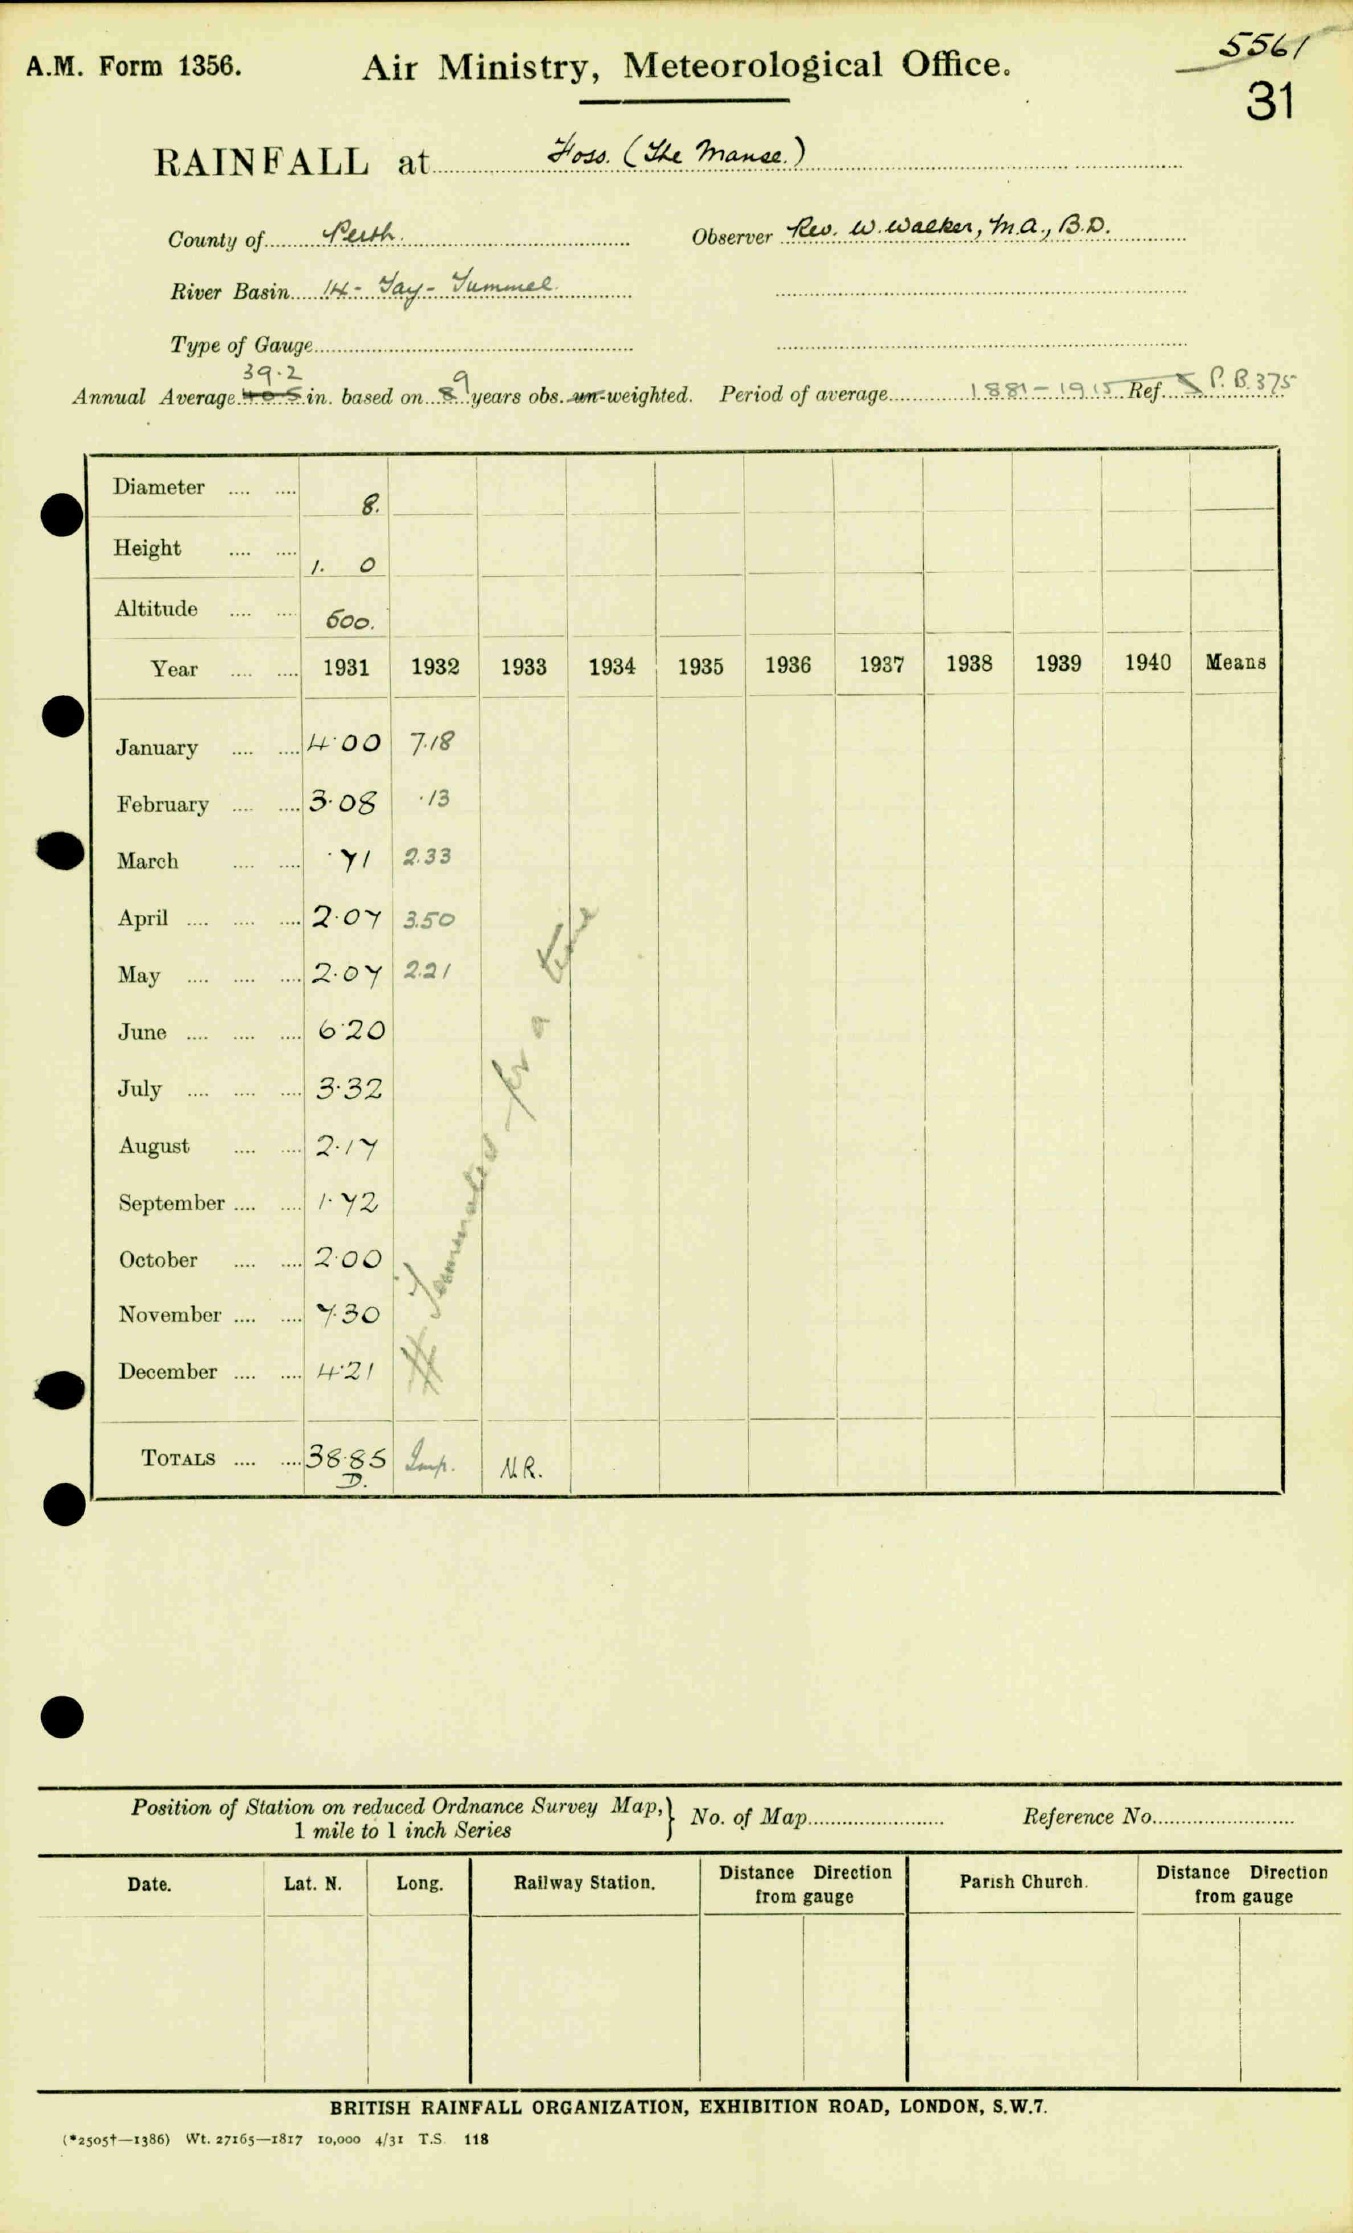 5561
A.M. Form 1356. Air Ministry, Meteorological Office.
31
RAINFALL at Foss. (The Manse.)
County of Perth. Observer Rev. W. Walker, M.A., B.D.
River Basin 14 - Tay - Tummel.
Type of Gauge
39.2
Annual Average 40.5 in. based on 8 9 years obs. un-weighted. Period of average 1881-1915 Ref. P.B. 375
Diameter 8.
Height 1. 0
Altitude 600.
Year 1931 1932 1933 1934 1935 1936 1937 1938 1939 1940 Means
January 4.00 7.18
February 3.08 .13
March .71 2.33
April 2.07 3.50
May 2.07 2.21
June 6.20
July 3.32
August 2.17
September 1.72
October 2.00
November 7.30
December 4.21
# Terminated for a time
TOTALS 38.85 Imp. N.R.
D.
Position of Station on reduced Ordnance Survey Map, } No. of Map Reference No.
1 mile to 1 inch Series
Date. Lat. N. Long. Railway Station. Distance Direction from gauge Parish Church. Distance Direction from gauge
BRITISH RAINFALL ORGANIZATION, EXHIBITION ROAD, LONDON, S.W.7.
(*2505†—1386) Wt. 27165—1817 10,000 4/31 T.S. 118